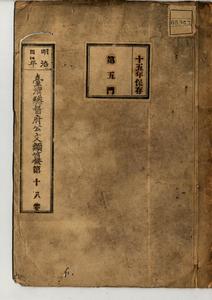 十五年保存
第五門
明治
四四年
臺灣總督府公文類纂第十八卷